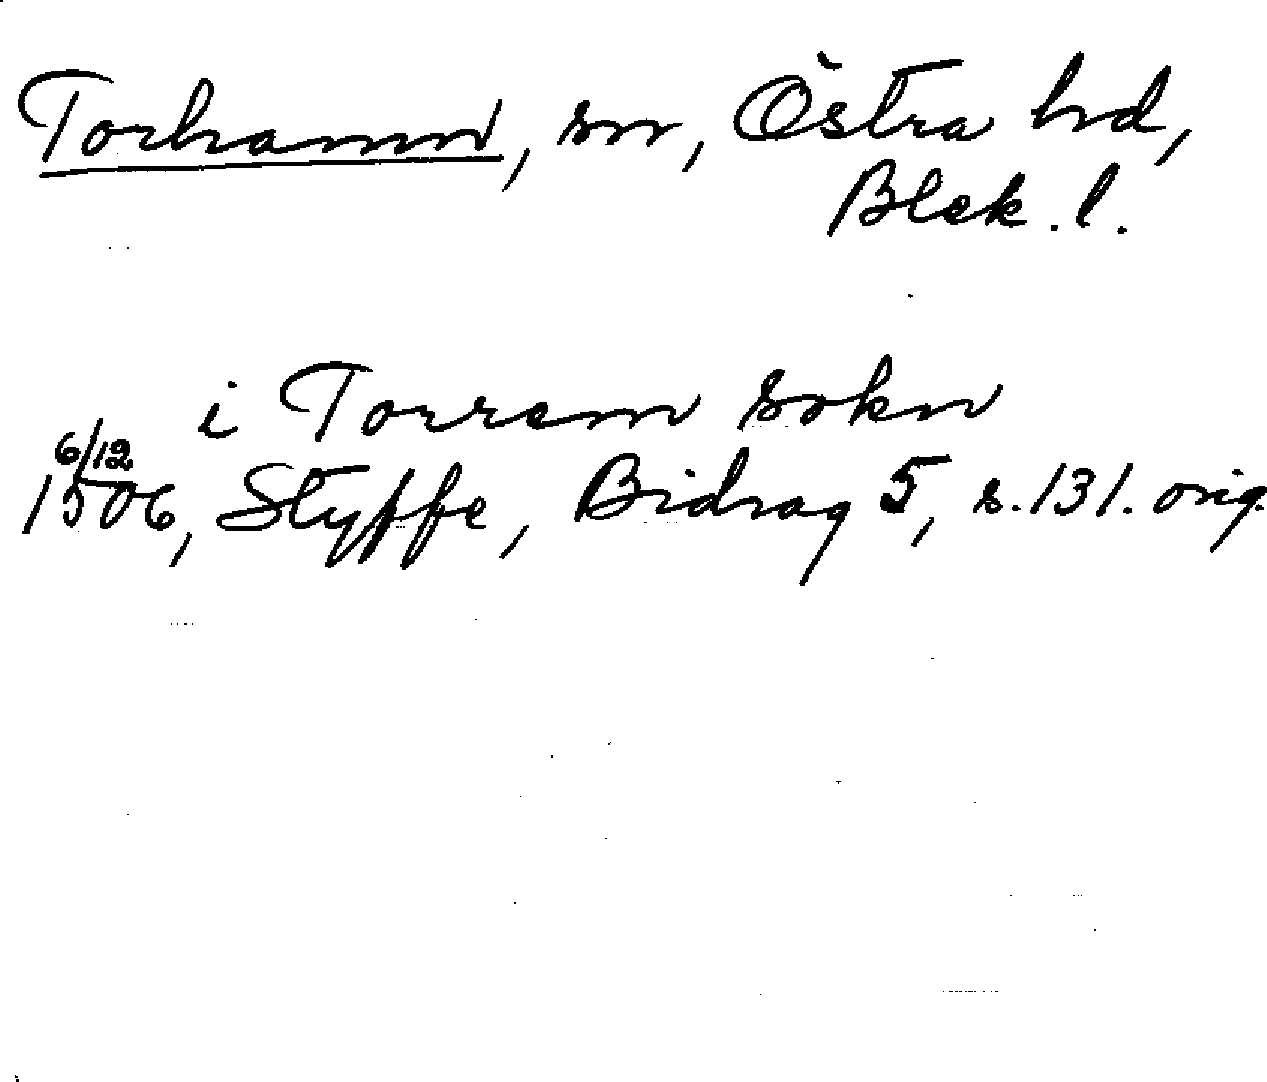 Torhamn, sn, Östra hd,
Blek. l.
i Torrem sokn
6/12
1506, Styffe, Bidrag 5, s. 131. orig.